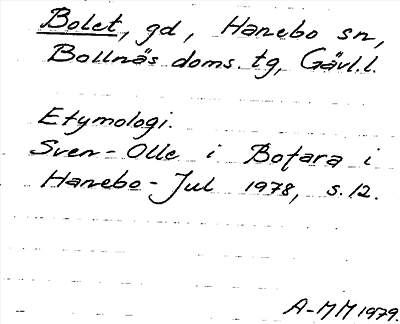 Bolet, gd, Hanebo sn,
Bollnäs doms. tg, Gävl.l.
Etymologi.
Sven-Olle i Bofara i
Hanebo-Jul 1978, s. 12.
A-MM 1979.